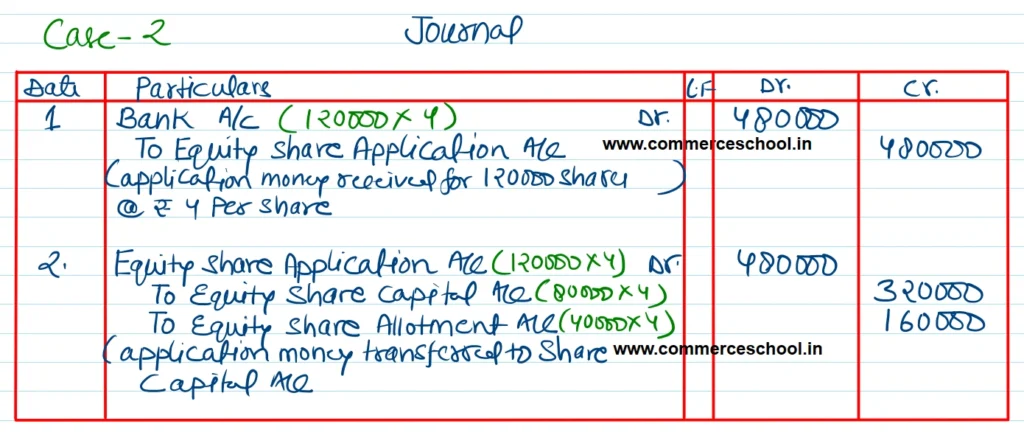 Case-2 Journal
Date Particulars L.F Dr. Cr.
1 Bank A/c (120000×4) Dr. 480000
To Equity Share Application A/c www.commerceschool.in 480000
(application money received for 120000 shares)
@ ₹ 4 Per Share
2. Equity Share Application A/c (120000×4) Dr. 480000
To Equity Share Capital A/c (80000×4) 320000
To Equity Share Allotment A/c (40000×4) 160000
(application money transferred to Share www.commerceschool.in
Capital A/c